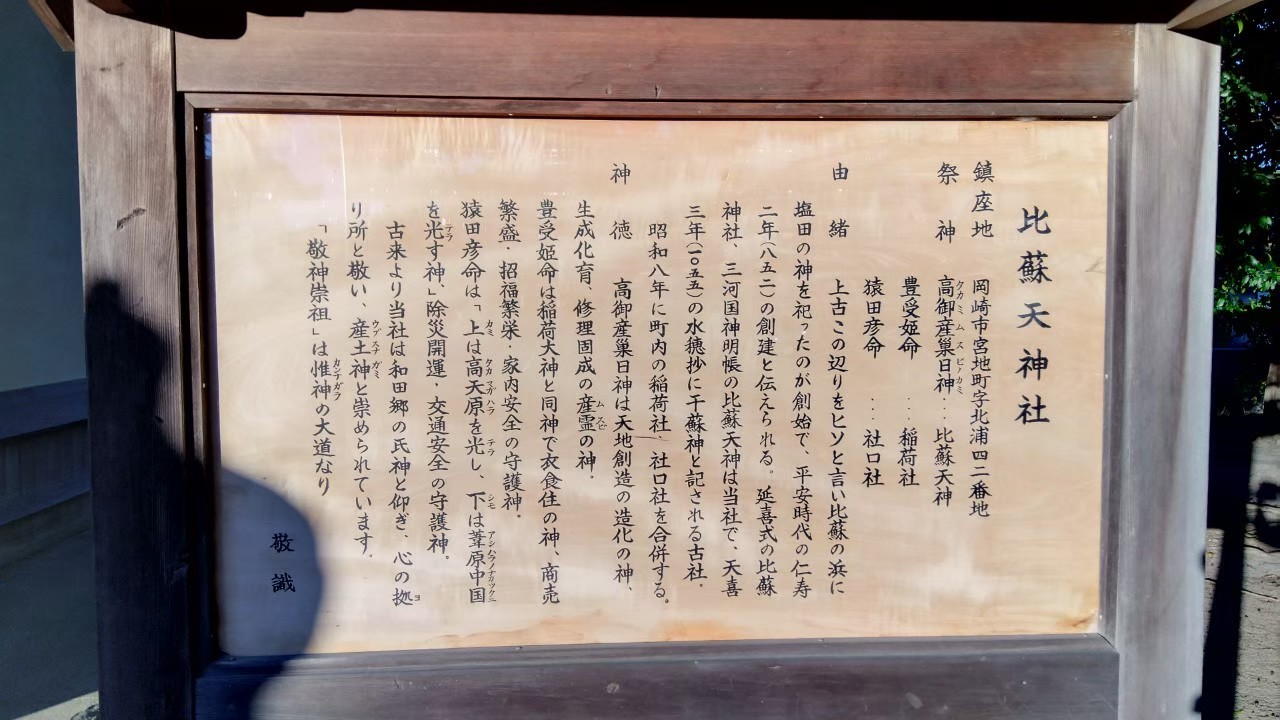 比蘇天神社
鎮座地　岡崎市宮地町字北浦四二番地
祭神　高御産巣日神…比蘇天神
豊受姫命…稲荷社
猿田彦命…社口社
由緒　上古この辺りをヒソと言い比蘇の浜に
塩田の神を祀ったのが創始で、平安時代の仁寿
二年(八五二)の創建と伝えられる。延喜式の比蘇
神社、三河国神明帳の比蘇天神は当社で、天喜
三年(一〇五五)の水穂抄に干蘇神と記される古社。
昭和八年に町内の稲荷社、社口社を合併する。
神徳　高御産巣日神は天地創造の造化の神、
生成化育、修理固成の産霊の神。
豊受姫命は稲荷大神と同神で衣食住の神、商売
繁盛・招福繁栄・家内安全の守護神。
猿田彦命は「上は高天原を光し、下は葦原中国
を光す神」除災開運・交通安全の守護神。
古来より当社は和田郷の氏神と仰ぎ、心の拠
り所と敬い、産土神と崇められています。
「敬神崇祖」は惟神の大道なり
敬識